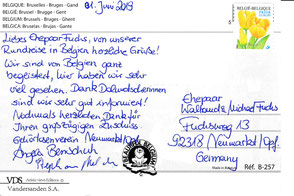 BELGIE: Brussel - Brugge - Gent
BELGIUM: Brussels - Bruges - Ghent
BELGICA: Bruselas - Brujas - Gante
01. Juni 2013
Liebes Ehepaar Fuchs, von unserer
Rundreise in Belgien herzliche Grüße!
Wir sind von Belgien ganz
begeistert, hier haben wir sehr
viel gesehen. Dank Dolmetscherinnen
sind wir sehr gut informiert!
Nochmals herzlichen Dank für
Ihren großzügigen Zuschuss
Gehörlosenverein Neumarkt/Opf.
Ehepaar
Waltraud u. Michael Fuchs
Fuchsweg 13
92318 Neumarkt/Opf.
Germany
VDS
Vandersanden S.A.
Réf. B-257